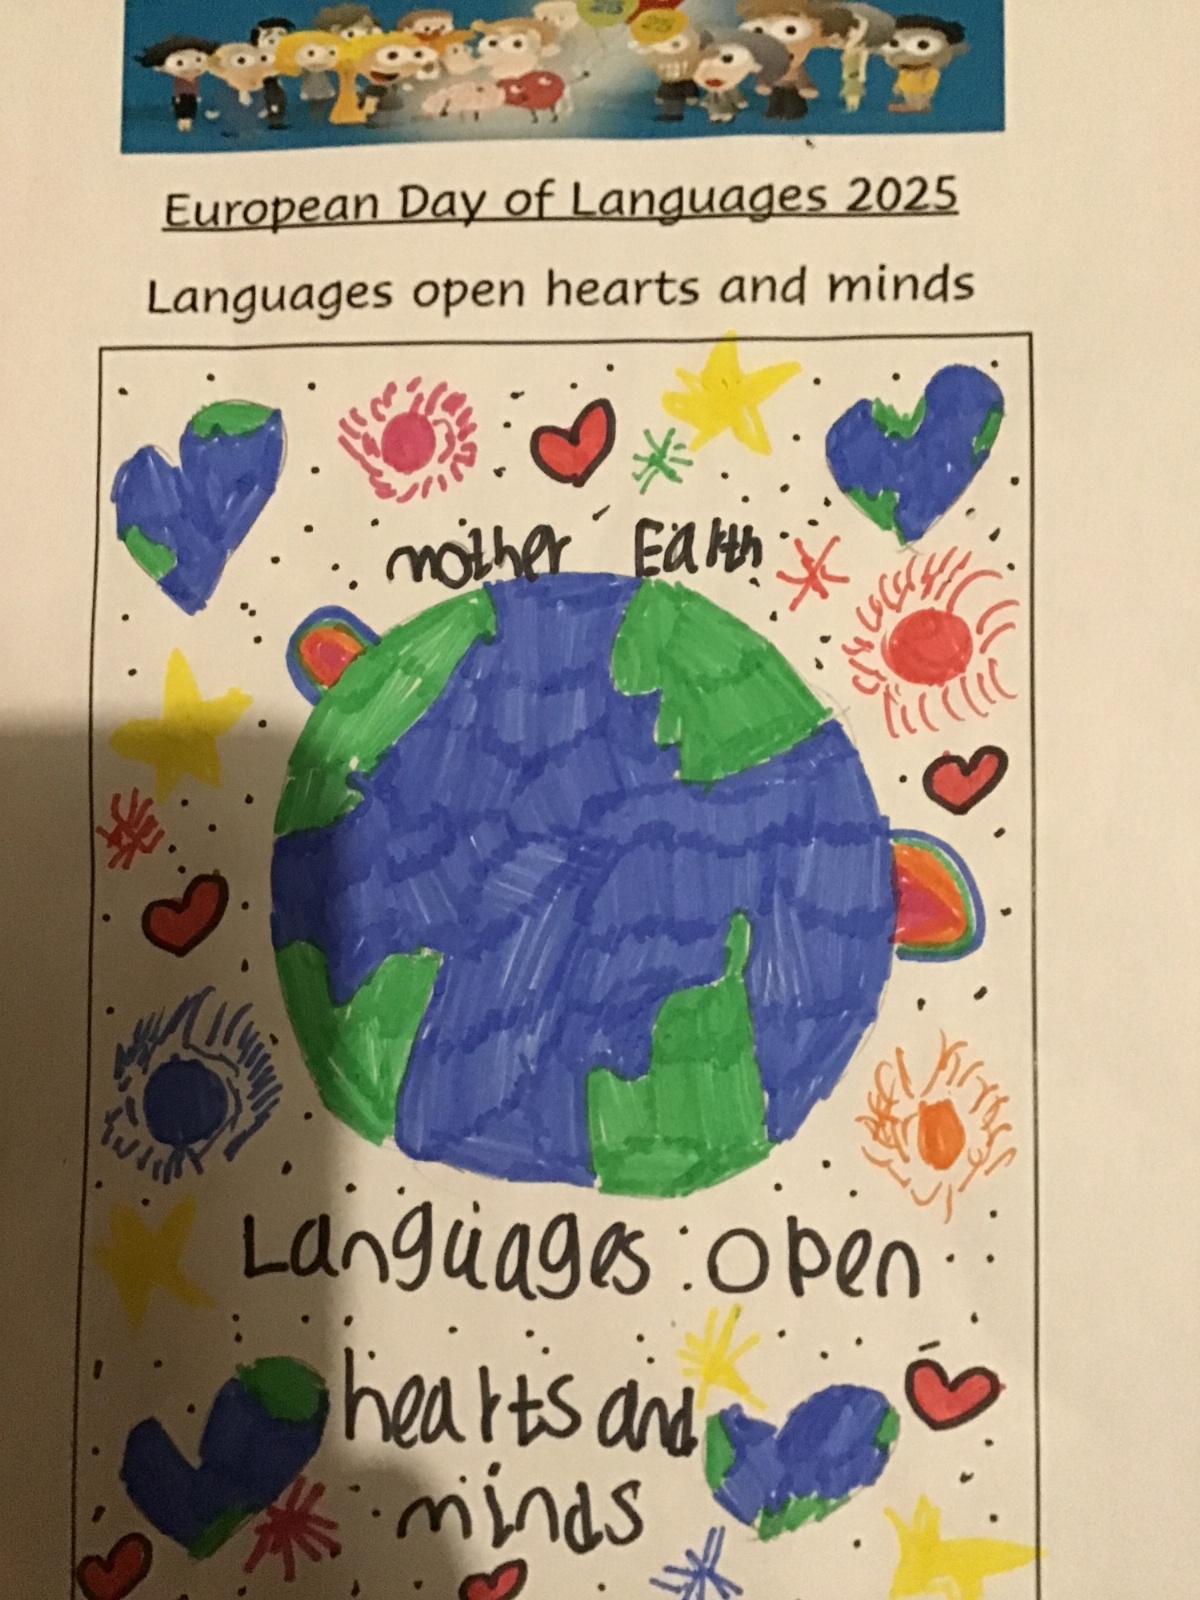 25
25
European Day of Languages 2025
Languages open hearts and minds
mother Earth
Languages open
hearts and
minds